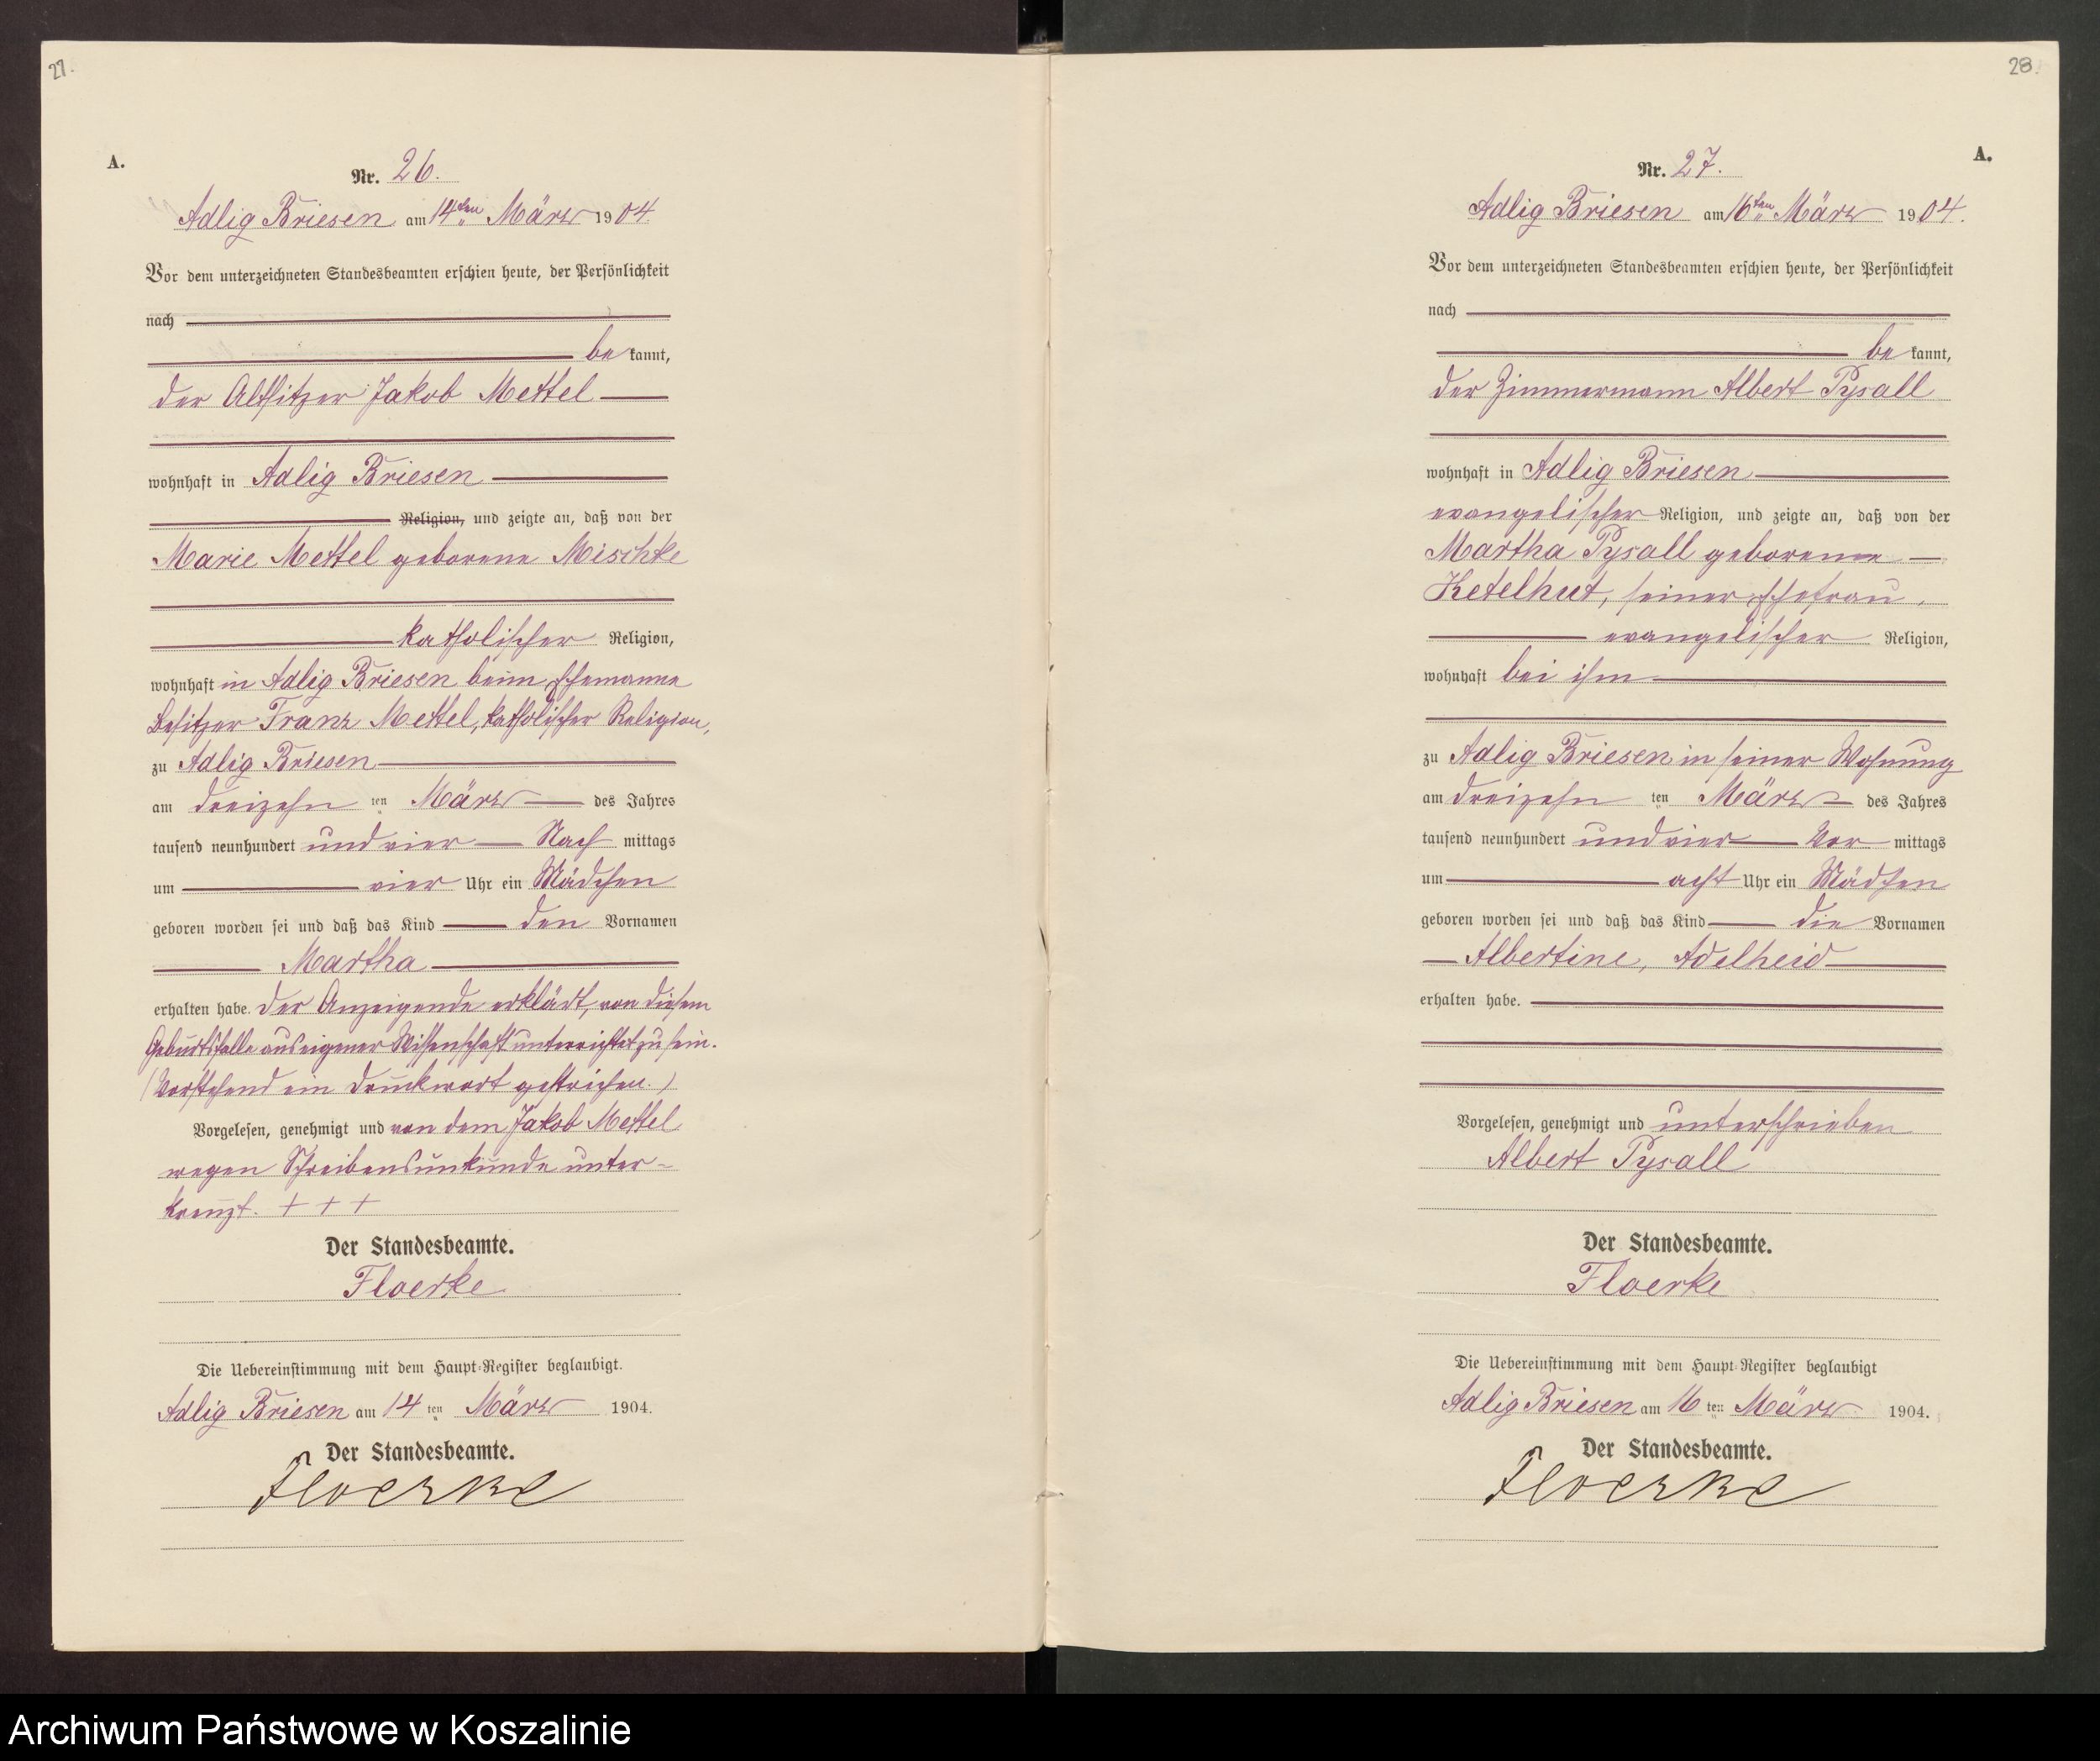 27.
A.
Nr. 26.
Adlig Briesen am 14ten März 1904.
Vor dem unterzeichneten Standesbeamten erschien heute, der Persönlichkeit
nach
be kannt,
der Altsitzer Jakob Mettel
wohnhaft in Adlig Briesen
Religion, und zeigte an, daß von der
Marie Mettel geborene Mischke
katholischer Religion,
wohnhaft in Adlig Briesen beim Ehemanne
Besitzer Franz Mettel, katholischer Religion,
zu Adlig Briesen
am dreizehn ten März des Jahres
tausend neunhundert und vier Nach mittags
um vier Uhr ein Mädchen
geboren worden sei und daß das Kind den Vornamen
Martha
erhalten habe. Der Anzeigende erklärt, von diesem
Geburtsfalle aus eigener Wissenschaft unterrichtet zu sein.
(Vorstehend ein Druckwort gestrichen.)
Vorgelesen, genehmigt und von dem Jakob Mettel
wegen Schreibensunkunde unter-
kreuzt. + + +
Der Standesbeamte.
Floerke
Die Uebereinstimmung mit dem Haupt-Register beglaubigt.
Adlig Briesen am 14 ten März 1904.
Der Standesbeamte.
Floerke
28.
A.
Nr. 27.
Adlig Briesen am 16ten März 1904.
Vor dem unterzeichneten Standesbeamten erschien heute, der Persönlichkeit
nach
be kannt,
der Zimmermann Albert Pysall
wohnhaft in Adlig Briesen
evangelischer Religion, und zeigte an, daß von der
Martha Pysall geborene
Ketelhut, seiner Ehefrau,
evangelischer Religion,
wohnhaft bei ihm
zu Adlig Briesen in seiner Wohnung
am dreizehn ten März des Jahres
tausend neunhundert und vier Vor mittags
um acht Uhr ein Mädchen
geboren worden sei und daß das Kind die Vornamen
Albertine, Adelheid
erhalten habe.
Vorgelesen, genehmigt und unterschrieben
Albert Pysall
Der Standesbeamte.
Floerke
Die Uebereinstimmung mit dem Haupt-Register beglaubigt
Adlig Briesen am 16 ten März 1904.
Der Standesbeamte.
Floerke
Archiwum Państwowe w Koszalinie